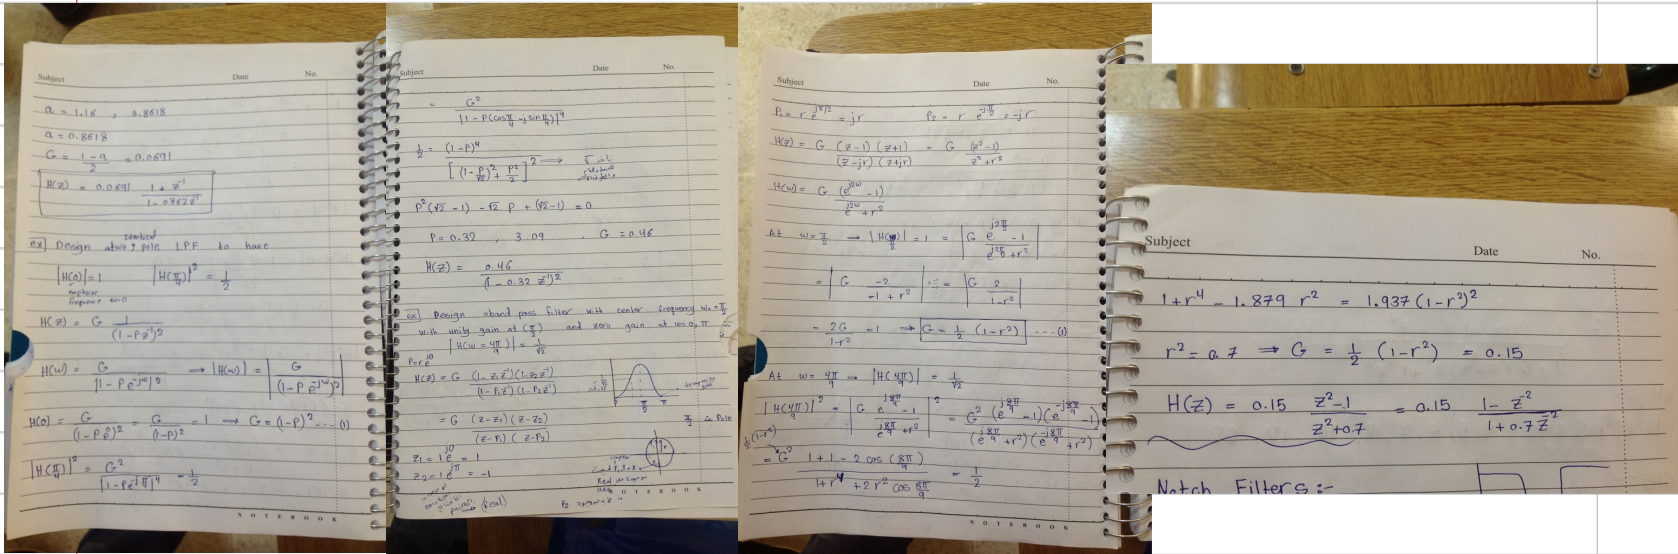 Subject Date No.
a = 1.16 , 0.8618
a = 0.8618
G = (1-a)/2 = 0.0691
H(z) = 0.0691 (1 + z^-1)/(1 - 0.862 z^-1)
ex] Design a two identical pole LPF to have
|H(0)| = 1 |H(π/4)|^2 = 1/2
frequency ω=0
H(z) = G 1/(1-Pz^-1)^2
H(ω) = G/[1-Pe^-jω]^2 → |H(ω)| = |G/(1-Pe^-jω)^2|
H(0) = G/(1-Pe^0)^2 = G/(1-P)^2 = 1 → G = (1-P)^2 .... (1)
|H(π/4)|^2 = G^2/|1-Pe^-jπ/4|^4 = 1/2
NOTEBOOK
Subject Date No.
= G^2/|1-P(cos π/4 - j sin π/4)|^4
1/2 = (1-P)^4/[(1-P/√2)^2 + P^2/2]^2 →
P^2(√2-1) - √2 P + (√2-1) = 0
P = 0.32 , 3.09 G = 0.46
H(z) = 0.46/(1 - 0.32 z^-1)^2
ex] Design a band pass filter with center frequency ω0 = π/2
with unity gain at (π/2) and zero gain at ω=0, π
|H(ω = 4π/9)| = 1/√2
P=re^jθ
H(z) = G (1-Z1z^-1)(1-Z2z^-1)/(1-P1z^-1)(1-P2z^-1)
= G (z-z1)(z-z2)/(z-P1)(z-P2)
π/2 is Pole
z1 = 1e^j0 = 1
z2 = 1e^jπ = -1
(real)
NOTEBOOK
Subject Date No.
P1 = r e^jπ/2 = jr P2 = r e^-jπ/2 = -jr
H(z) = G (z-1)(z+1)/(z-jr)(z+jr) = G (z^2-1)/z^2+r^2
H(ω) = G (e^j2ω - 1)/e^j2ω + r^2
At ω = π/2 → |H(π/2)| = 1 = |G (e^j2π/2 - 1)/(e^j2π/2 + r^2)|
= |G -2/(-1 + r^2)| = |G 2/(1-r^2)|
= 2G/(1-r^2) = 1 → G = 1/2 (1-r^2) .... (1)
At ω = 4π/9 → |H(4π/9)| = 1/√2
|H(4π/9)|^2 = |G (e^j8π/9 - 1)/(e^j8π/9 + r^2)|^2 = G^2 (e^j8π/9 - 1)(e^-j8π/9 - 1)/(e^j8π/9 + r^2)(e^-j8π/9 + r^2)
1/2(1-r^2)
= G^2 (1+1-2 cos(8π/9))/(1+r^4+2r^2 cos 8π/9) = 1/2
NOTEBOOK
Subject Date No.
1+r^4 - 1.879 r^2 = 1.937 (1-r^2)^2
r^2 = 0.7 ⇒ G = 1/2 (1-r^2) = 0.15
H(z) = 0.15 (z^2-1)/(z^2+0.7) = 0.15 (1-z^-2)/(1+0.7z^-2)
Notch Filters:-